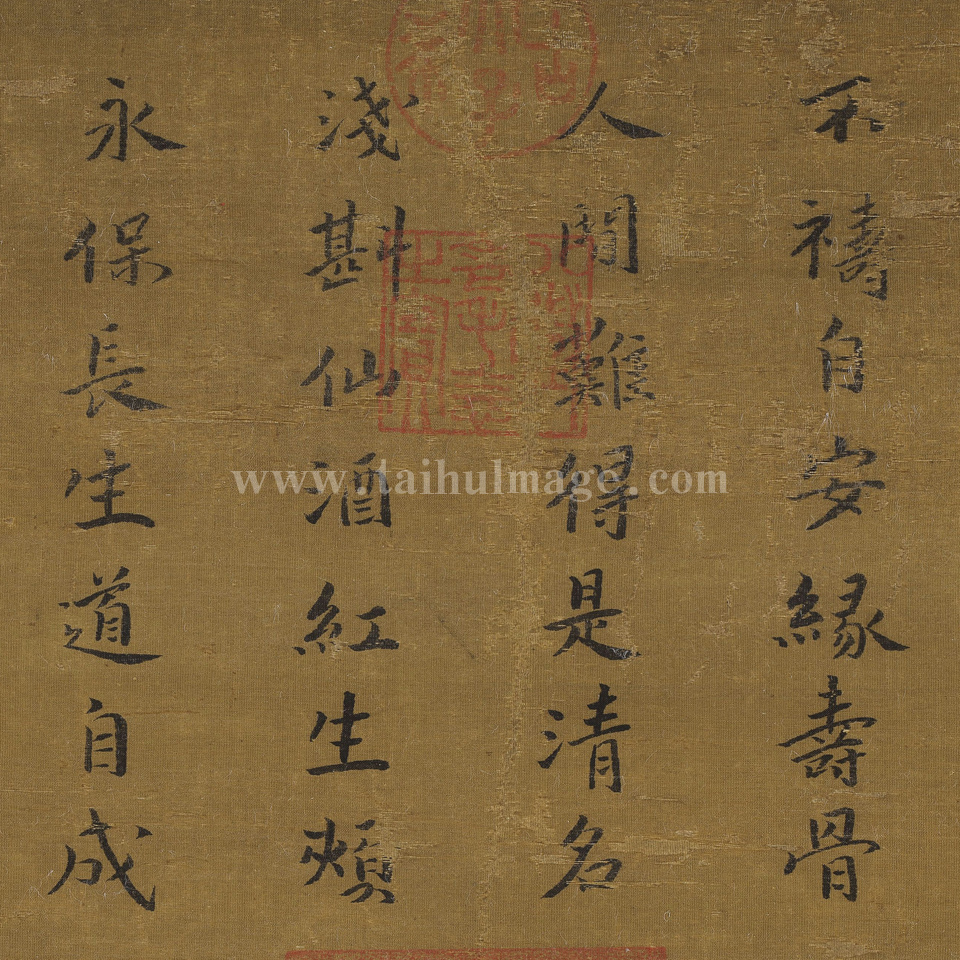 不禱自安緣壽骨
人間難得是清名
淺斟仙酒紅生頰
永保長生道自成
www.taihuImage.com